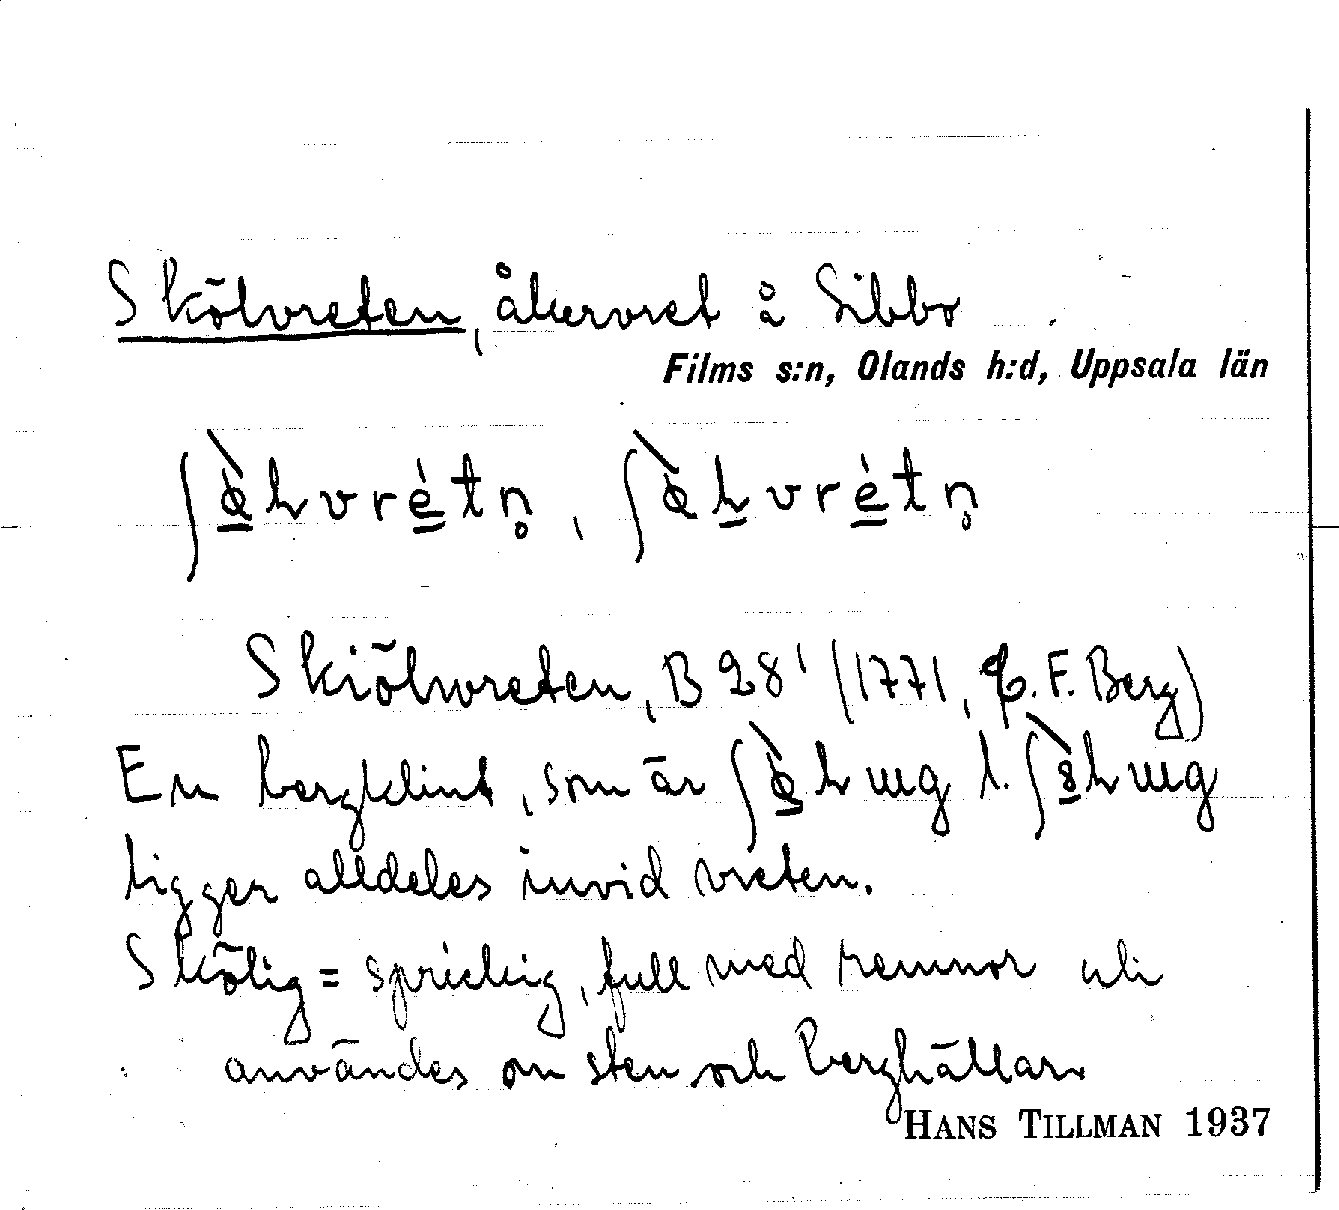 Skölvreten, åkervret å Sibbo
Films s:n, Olands h:d, Uppsala län
Skiölwreten, B 28¹ (1771, F. Berg)
En bergklint, som är l.
ligger alldeles invid vreten.
Skölig = sprickig, full med remnor och
användes om sten och berghällar
HANS TILLMAN 1937